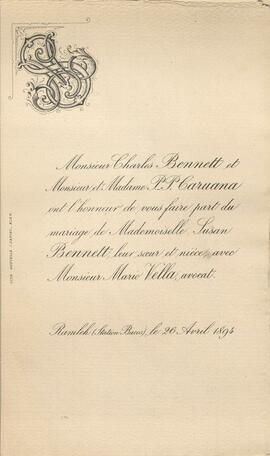 Monsieur Charles Bennett et
Monsieur et Madame P. P. Caruana
ont l'honneur de vous faire part du
mariage de Mademoiselle Susan
Bennett, leur sœur et nièce, avec
Monsieur Mario Vella, avocat.
Ramleh (Station Bacos), le 26 Avril 1894